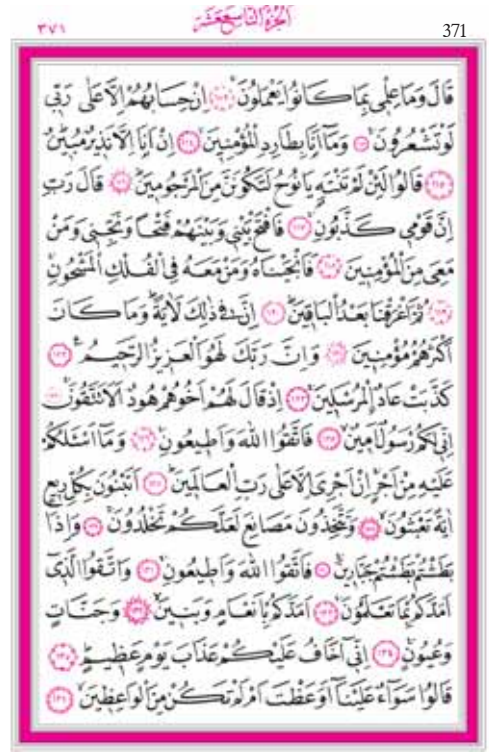 ٣٧١ الجزء التاسع عشر 371
قَالَ وَمَا عِلْمِى بِمَا كَانُوا يَعْمَلُونَ ﴿١١٢﴾ اِنْ حِسَابُهُمْ اِلَّا عَلٰى رَبّٖى
لَوْ تَشْعُرُونَ ﴿١١٣﴾ وَمَٓا اَنَا۬ بِطَارِدِ الْمُؤْمِنٖينَ ﴿١١٤﴾ اِنْ اَنَا۬ اِلَّا نَذٖيرٌ مُبٖينٌ
﴿١١٥﴾ قَالُوا لَئِنْ لَمْ تَنْتَهِ يَا نُوحُ لَتَكُونَنَّ مِنَ الْمَرْجُومٖينَ ﴿١١٦﴾ قَالَ رَبِّ
اِنَّ قَوْمٖى كَذَّبُونِ ﴿١١٧﴾ فَافْتَحْ بَيْنٖى وَبَيْنَهُمْ فَتْحًا وَنَجِّنٖى وَمَنْ
مَعِىَ مِنَ الْمُؤْمِنٖينَ ﴿١١٨﴾ فَاَنْجَيْنَاهُ وَمَنْ مَعَهُ فِى الْفُلْكِ الْمَشْحُونِ
﴿١١٩﴾ ثُمَّ اَغْرَقْنَا بَعْدُ الْبَاقٖينَ ﴿١٢٠﴾ اِنَّ فٖى ذٰلِكَ لَاٰيَةً وَمَا كَانَ
اَكْثَرُهُمْ مُؤْمِنٖينَ ﴿١٢١﴾ وَاِنَّ رَبَّكَ لَهُوَ الْعَزٖيزُ الرَّحٖيمُ ﴿١٢٢﴾
كَذَّبَتْ عَادٌ الْمُرْسَلٖينَ ﴿١٢٣﴾ اِذْ قَالَ لَهُمْ اَخُوهُمْ هُودٌ اَلَا تَتَّقُونَ ﴿١٢٤﴾
اِنّٖى لَكُمْ رَسُولٌ اَمٖينٌ ﴿١٢٥﴾ فَاتَّقُوا اللّٰهَ وَاَطٖيعُونِ ﴿١٢٦﴾ وَمَٓا اَسْـَٔلُكُمْ
عَلَيْهِ مِنْ اَجْرٍ اِنْ اَجْرِىَ اِلَّا عَلٰى رَبِّ الْعَالَمٖينَ ﴿١٢٧﴾ اَتَبْنُونَ بِكُلِّ رٖيعٍ
اٰيَةً تَعْبَثُونَ ﴿١٢٨﴾ وَتَتَّخِذُونَ مَصَانِعَ لَعَلَّكُمْ تَخْلُدُونَ ﴿١٢٩﴾ وَاِذَا
بَطَشْتُمْ بَطَشْتُمْ جَبَّارٖينَ ﴿١٣٠﴾ فَاتَّقُوا اللّٰهَ وَاَطٖيعُونِ ﴿١٣١﴾ وَاتَّقُوا الَّذٖٓى
اَمَدَّكُمْ بِمَا تَعْلَمُونَ ﴿١٣٢﴾ اَمَدَّكُمْ بِاَنْعَامٍ وَبَنٖينَ ﴿١٣٣﴾ وَجَنَّاتٍ
وَعُيُونٍ ﴿١٣٤﴾ اِنّٖٓى اَخَافُ عَلَيْكُمْ عَذَابَ يَوْمٍ عَظٖيمٍ ﴿١٣٥﴾
قَالُوا سَوَٓاءٌ عَلَيْنَٓا اَوَعَظْتَ اَمْ لَمْ تَكُنْ مِنَ الْوَاعِظٖينَ ﴿١٣٦﴾